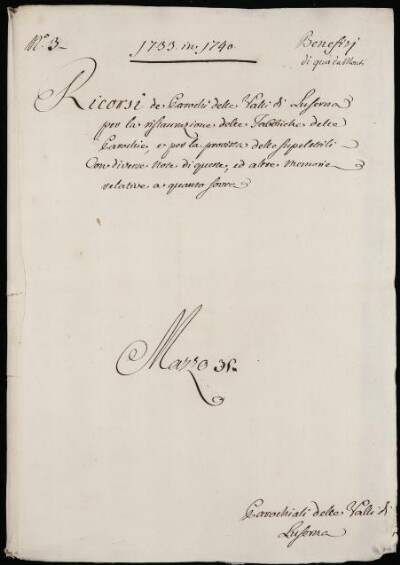 N.° 3
1733. in 1740.
Benefizj
di qua da Monti
Ricorsi de Parochi delle Valli di Luserna
per la ristaurazione delle Fabbriche delle
Parochie, e per la provvista delle supelettili
Con diverse note di queste, ed altre memorie
relative a quanto sovra
Mazzo
Parochiali delle Valli di
Luserna